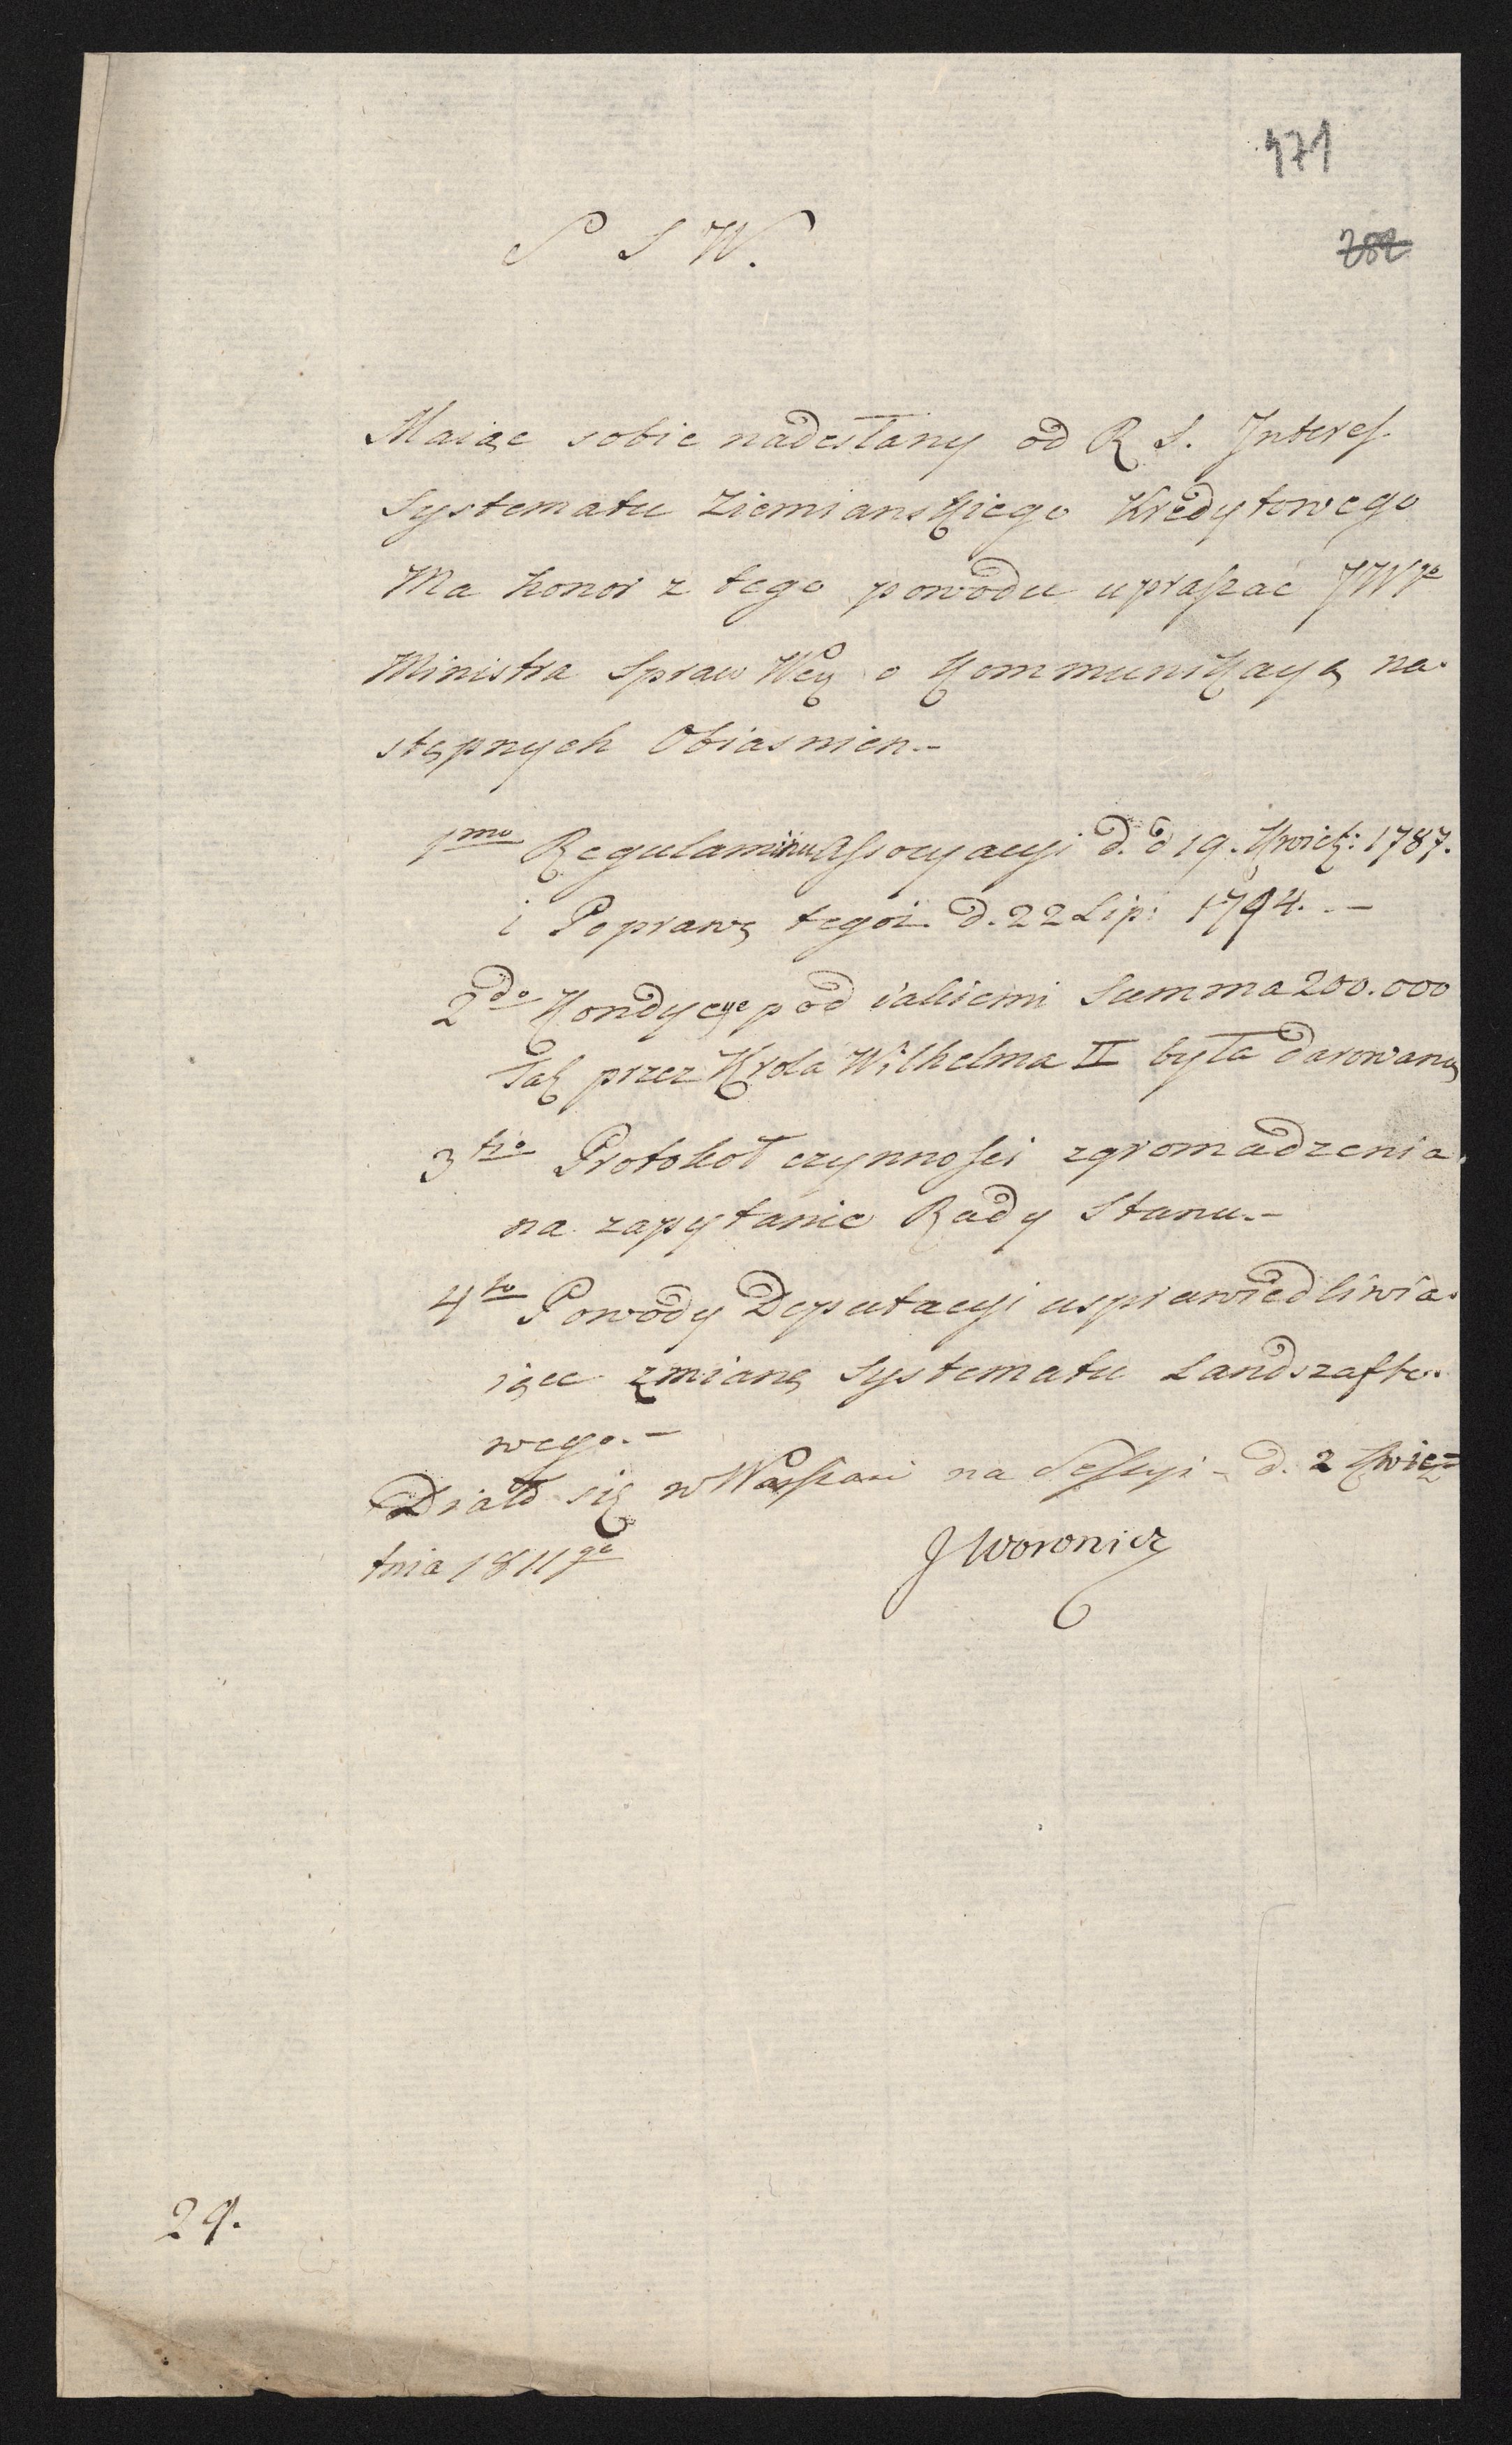 471
S S W.
202
Maiąc sobie nadesłany od R S. Interes.
Systematu Ziemianskiego Kredytowego
Ma honor z tego powodu upraszać JWgo
Ministra Spraw Wey o Kommunikacyą na-
stępnych Obiasnien.-
1mo Regulaminu Assocyacyi d. d 19. Kwiet: 1787.
i Poprawę tegoż d. 22 Lip: 1794. -
2do Kondycye pod iakiemi Summa 200.000
Tal przez Krola Wilhelma II była darowaną
3tio Protokoł czynnosci zgromadzenia
na zapytanie Rady Stanu.-
4to Powody Deputacyi usprawiedliwia-
iące zmianę Systematu Landszafto-
wego.-
Działo się w Warszawi na Sessyi - d. 2 Kwie=
tnia 1811go
J Woronicz
29.